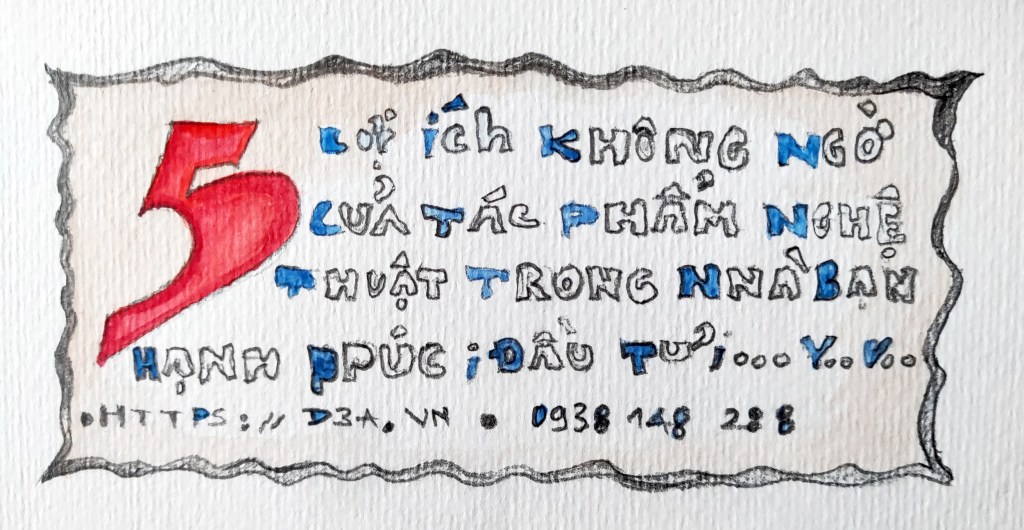 5 LỢI ÍCH KHÔNG NGỜ
CỦA TÁC PHẨM NGHỆ
THUẬT TRONG NHÀ BẠN
HẠNH PPÚC ; ĐẦU TƯ ; ... V..V..
• HTTPS://D3A.VN • 0938 148 288